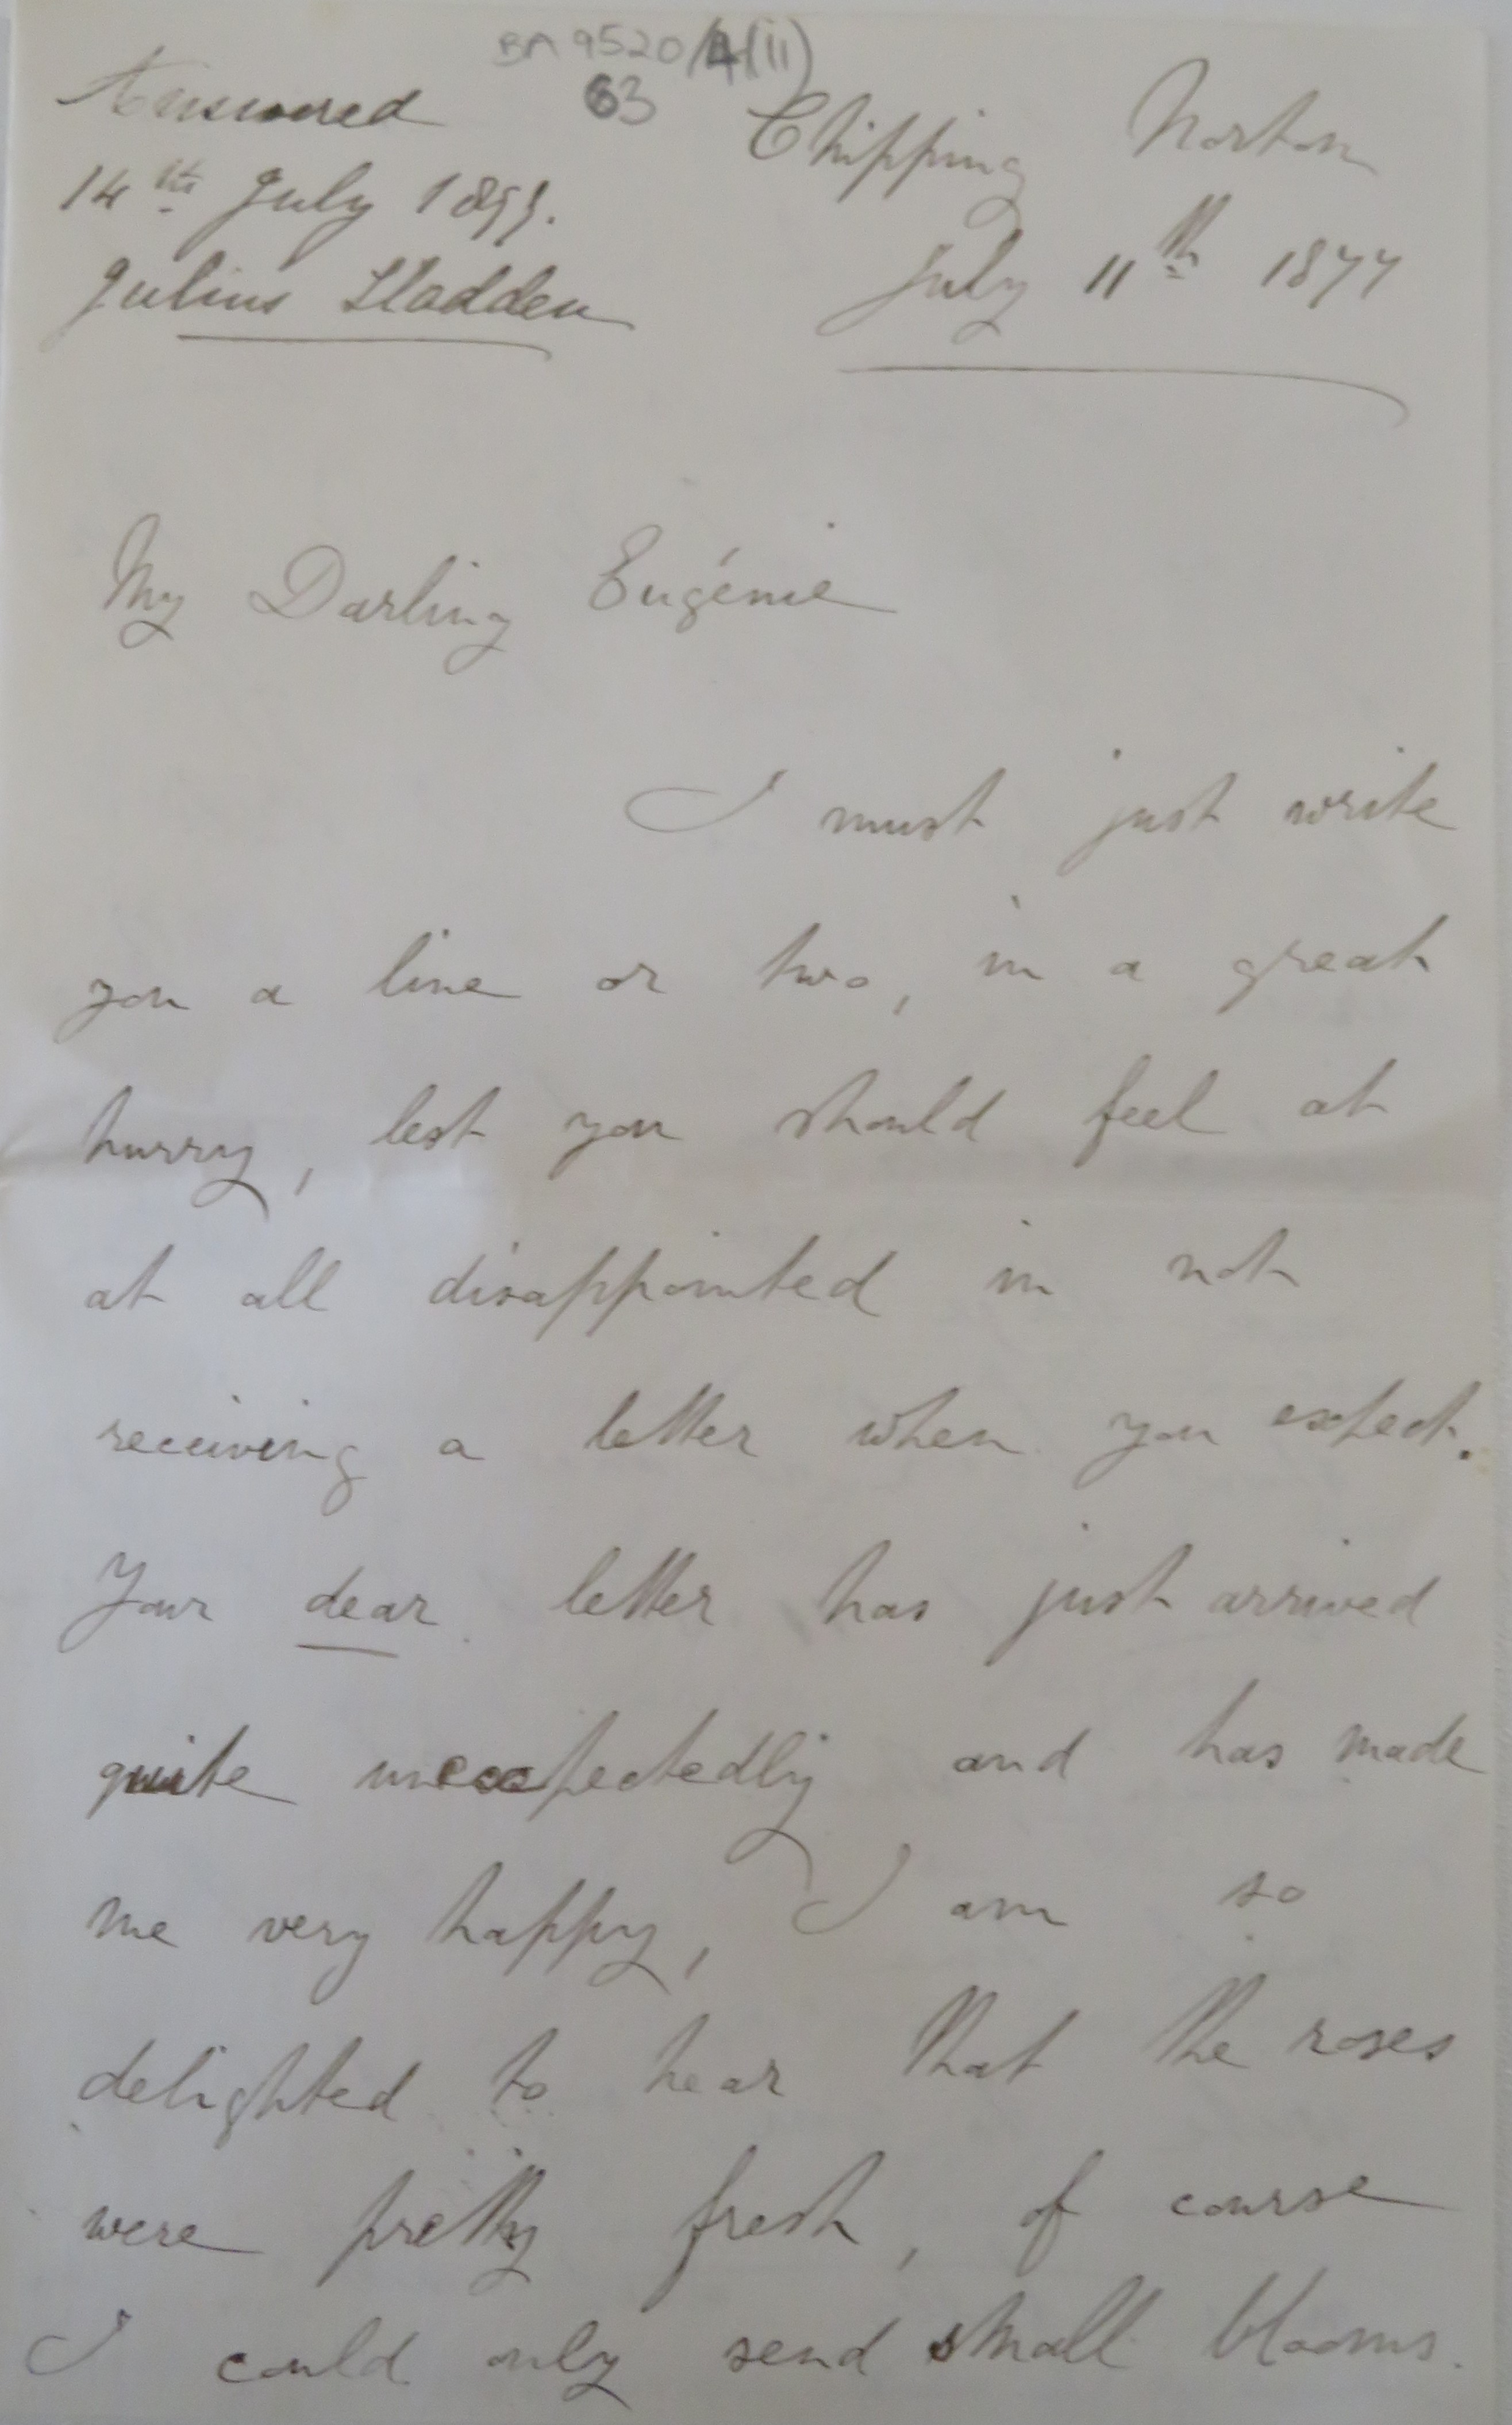 BA 9520/4(ii)
63
Answered
14th July 1877.
Julius Sladden
Chipping Norton
July 11th 1877
My Darling Eugénie
I must just write
you a line or two, in a great
hurry, lest you should feel at
at all disappointed in not
receiving a letter when you expect.
Your dear letter has just arrived
quite unexpectedly and has made
me very happy, I am so
delighted to hear that the roses
were pretty fresh, of course
I could only send small blooms.